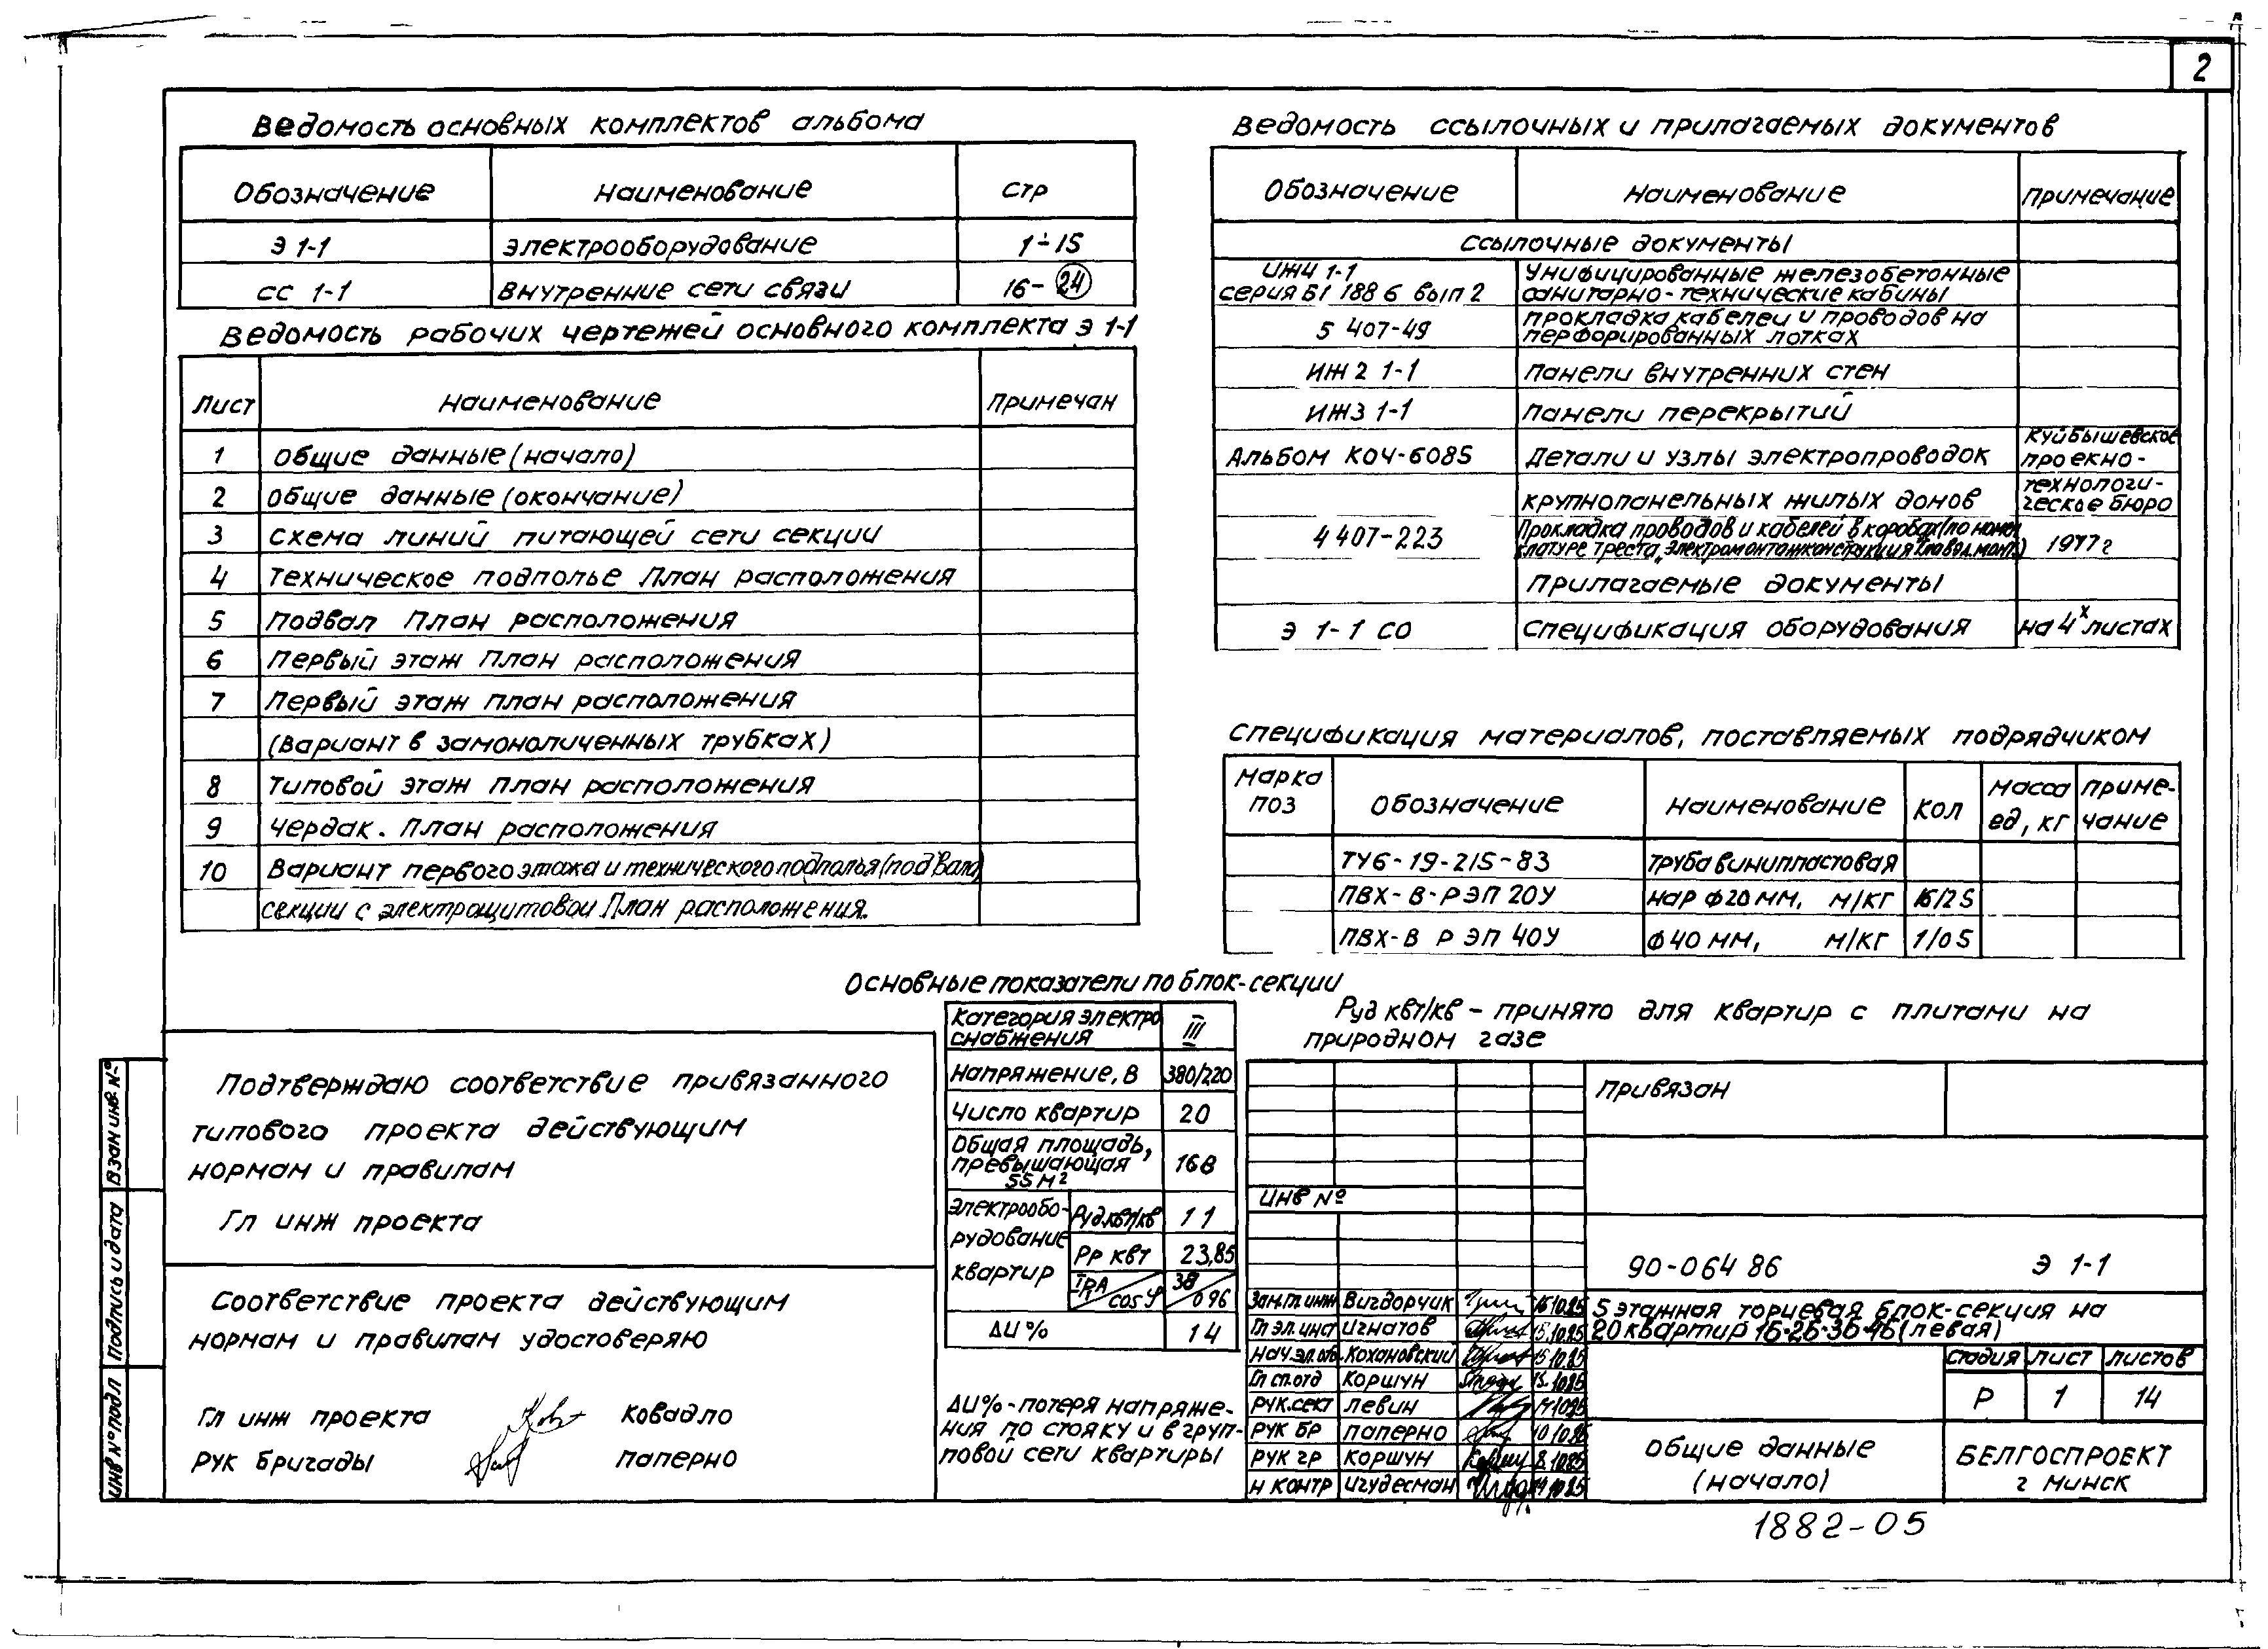 2
Ведомость основных комплектов альбома
Обозначение Наименование Стр
Э 1-1 Электрооборудование 1÷15
СС 1-1 Внутренние сети связи 16-24
Ведомость рабочих чертежей основного комплекта Э 1-1
Лист Наименование Примечан
1 Общие данные (начало)
2 Общие данные (окончание)
3 Схема линий питающей сети секции
4 Техническое подполье План расположения
5 Подвал План расположения
6 Первый этаж План расположения
7 Первый этаж План расположения
(Вариант в замоноличенных трубках)
8 Типовой этаж План расположения
9 Чердак. План расположения
10 Вариант первого этажа и технического подполья (подвала)
секции с электрощитовой План расположения.
Ведомость ссылочных и прилагаемых документов
Обозначение Наименование Примечание
Ссылочные документы
ИЖ4 1-1 Унифицированные железобетонные
серия Б1 188 6 вып 2 санитарно-технические кабины
5 407-49 Прокладка кабелей и проводов на
перфорированных лотках
ИЖ 2 1-1 Панели внутренних стен
ИЖ3 1-1 Панели перекрытий
Альбом КОЧ-6085 Детали и узлы электропроводок Куйбышевское
проекно-
крупнопанельных жилых домов технологи-
ческое бюро
4 407-223 Прокладка проводов и кабелей в коробах (по номен
клатуре треста „Электромонтажконструкция" 1977 г
Прилагаемые документы
Э 1-1 СО Спецификация оборудования на 4х листах
Спецификация материалов, поставляемых подрядчиком
Марка поз Обозначение Наименование Кол Масса ед, кг Приме-чание
ТУ6-19-215-83 Труба винипластовая
ПВХ-В-Р ЭП 20У нар ф20 мм, м/кг 16/2 5
ПВХ-В Р ЭП 40У ф40 мм, м/кг 1/0 5
Основные показатели по блок-секции
Категория электро
снабжения III
Напряжение, В 380/220
Число квартир 20
Общая площадь,
превышающая
55 м² 168
Электрообо-
рудование
квартир
Руд.квт/кв 1 1
Рр квт 23,85
Iр А
cos φ 38
0 96
ΔU % 1 4
ΔU%-потеря напряже-
ния по стояку и в груп-
повой сети квартиры
Руд квт/кв - принято для квартир с плитами на
природном газе
Подтверждаю соответствие привязанного
типового проекта действующим
нормам и правилам
Гл инж проекта
Соответствие проекта действующим
нормам и правилам удостоверяю
Гл инж проекта Ковадло
Рук бригады Паперно
Взам инв. №
Подпись и дата
Инв № подл
Привязан
Инв №
90-064 86 Э 1-1
Зам.гл.инж Вигдорчик 16 10.85
Гл эл.инст Игнатов 15.10.85
Нач.эл.отд. Кохановский 15 10.85
Гл сп.отд Коршун 15.10.85
Рук.сект Левин 14 10.85
Рук бр Паперно 10 10.85
Рук гр Коршун 8.10.85
Н контр Игудесман 14 10.85
5 этажная торцевая блок-секция на
20 квартир 1Б-2Б-3Б-4Б (левая)
Стадия Лист Листов
Р 1 14
Общие данные
(начало)
БЕЛГОСПРОЕКТ
г Минск
1882-05